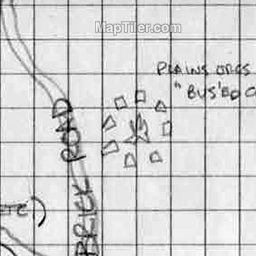 MapTiler.com
PLAINS ORCS
"BUS'ED C
BRICK ROAD